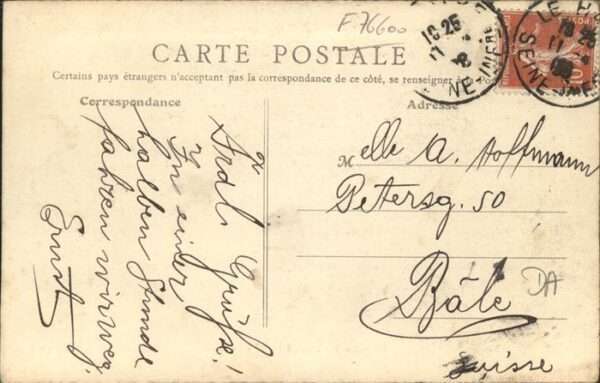 F 76600
CARTE POSTALE
Certains pays étrangers n'acceptant pas la correspondance de ce côté, se renseigner à la Pos
Correspondance
Frdl. Grüße!
In einer
halben Stunde
fahren wir weg.
Ernst
Adresse
Melle A. Hoffmann
Petersg. 50
Bâle
Suisse
DA
18 25
LE H
SEINE